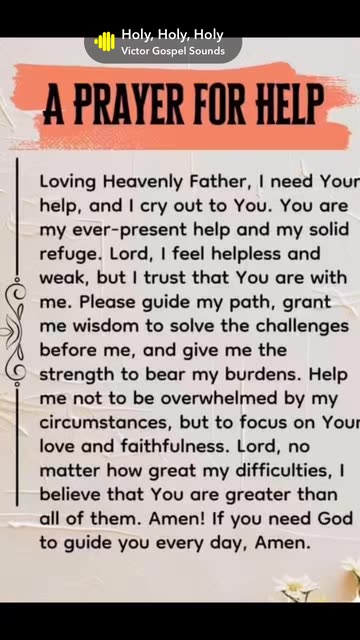 Holy, Holy, Holy
Victor Gospel Sounds
A PRAYER FOR HELP
Loving Heavenly Father, I need Your
help, and I cry out to You. You are
my ever-present help and my solid
refuge. Lord, I feel helpless and
weak, but I trust that You are with
me. Please guide my path, grant
me wisdom to solve the challenges
before me, and give me the
strength to bear my burdens. Help
me not to be overwhelmed by my
circumstances, but to focus on Your
love and faithfulness. Lord, no
matter how great my difficulties, I
believe that You are greater than
all of them. Amen! If you need God
to guide you every day, Amen.